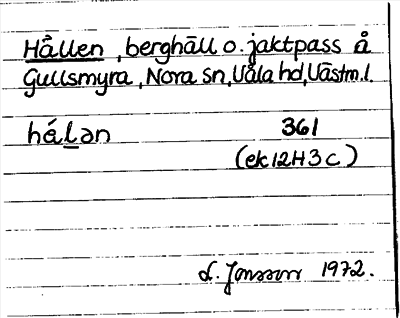 Hållen, berghäll o. jaktpass å
Gullsmyra, Nora sn, Våla hd, Västm.l.
hálən 361
(ek 12H 3c)
L. Jonsson 1972.